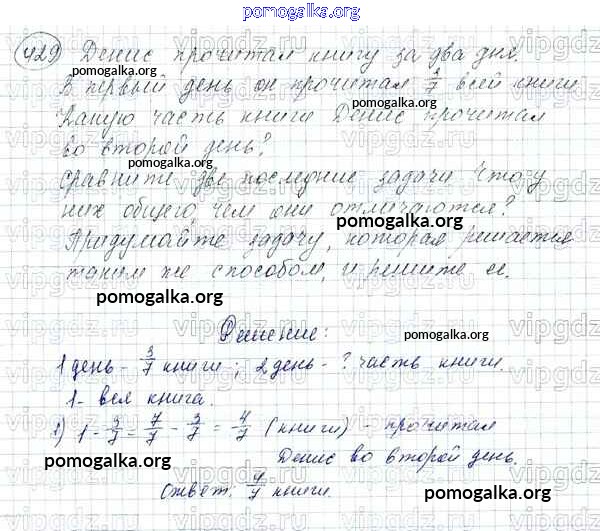 pomogalka.org
429 Денис прочитал книгу за два дня.
pomogalka.org
В первый день он прочитал 3/7 всей книги
Какую часть книги Денис прочитал
pomogalka.org
во второй день?
pomogalka.org
Сравните две последние задачи Что у
них общего, чем они отличаются?
pomogalka.org
Придумайте задачу, которая решается
таким же способом, и решите ее.
pomogalka.org
Решение:
pomogalka.org
1 день - 3/7 книги; 2 день - ? часть книги.
pomogalka.org
1 - вся книга.
1) 1 - 3/7 = 7/7 - 3/7 = 4/7 (книги) - прочитал
pomogalka.org
Денис во второй день.
pomogalka.org
Ответ: 4/7 книги.
pomogalka.org